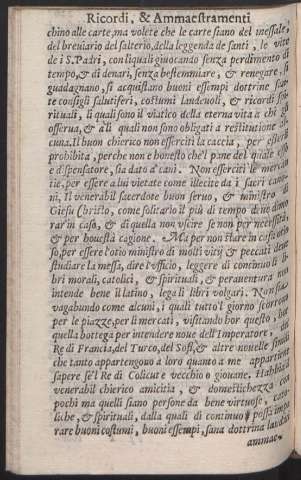 Ricordi, & Ammaestramenti
chino alle carte, ma volete che le carte siano del messale,
del breviario del salterio, della leggenda de santi, le vite
de i S. Padri, con li quali giuocando senza perdimento di
tempo, & di denari, senza bestemmiare, & renegare, si
guadagnano, si acquistano buoni essempi dottrine san-
te consigli salutiferi, costumi laudevoli, & ricordi spi-
rituali, li quali sono il viatico della eterna vita a chi gli
osserua, & a li quali non sono obligati a restitutione al-
cuna. Il buon chierico non esserciti la caccia, per esserli
prohibita, perche non è honesto che'l pane del quale esso
e dispensatore, sia dato a' cani. Non esserciti le mercan-
tie, per essere a lui vietate come illecite da i sacri cano-
ni, Il venerabil sacerdote buon seruo, & ministro di
Giesu Christo, come solitario il più di tempo deue dimo-
rar in casa, & di quella non vscire se non per necessità,
& per honestà cagione. Ma per non stare in casa otio-
so, per essere l'otio ministro di molti vitij & peccati deue
studiare la messa, dire l'officio, leggere di continuo li li-
bri morali, catolici, & spirituali, & perauentura non
intende bene il latino, legali libri volgari. Non sia
vagabundo come alcuni, i quali tutto'l giorno scorrono
per le piazze, per li mercati, visitando hor questa, hor
quella bottega per intendere noue dell'Imperatore, del
Re di Francia, del Turco, del Sofi, & altre nouelle simili
che tanto appartengono a loro quanto a me appartiene
sapere se'l Re di Colicut e vecchio o giouane. Habbia il
venerabil chierico amicitia, & domestichezza con
pochi ma quelli siano persone da bene virtuose, cato-
liche, & spirituali, dalla quali di continuo possa impa-
rare buoni costumi, buoni essempi, sana dottrina laudati
ammae-